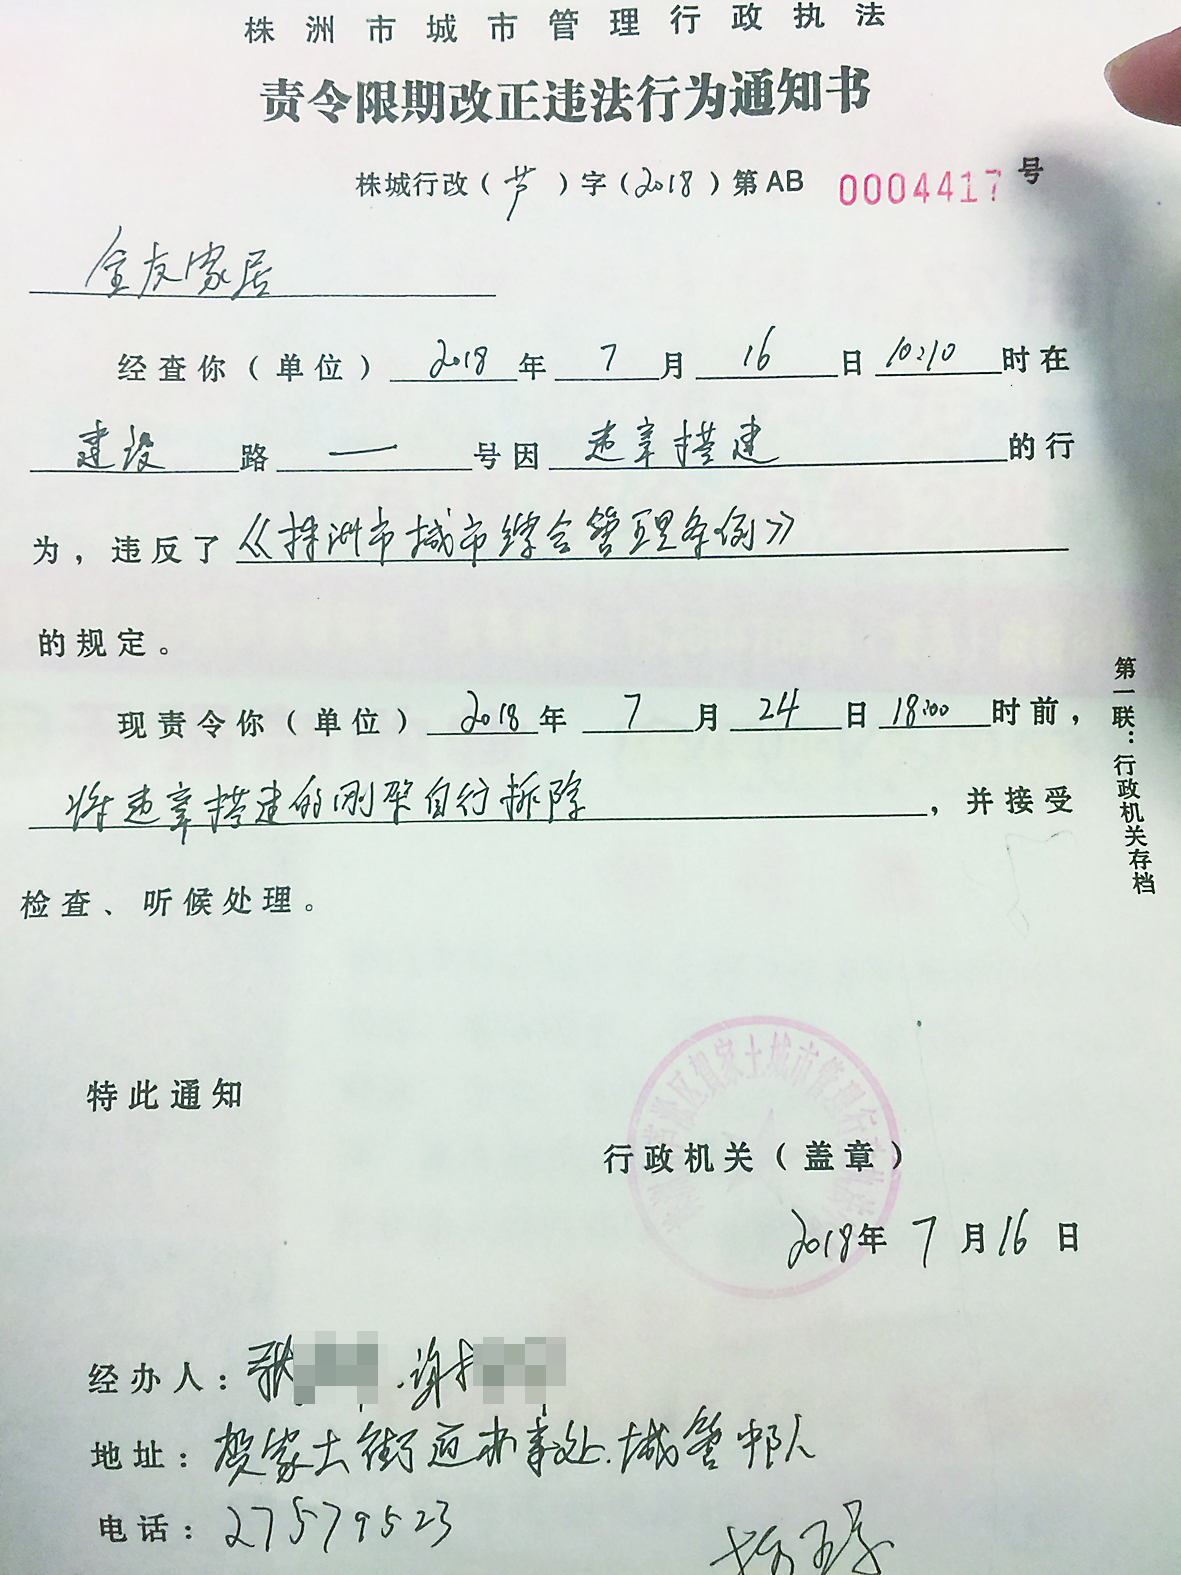 株洲市城市管理行政执法
责令限期改正违法行为通知书
株城行改（芦）字（2018）第AB 0004417号
全友家居
经查你（单位）2018年7月16日10:10时在
建设路一号因违章搭建的行
为，违反了《株洲市城市综合管理条例》
的规定。
现责令你（单位）2018年7月24日18:00时前，
将违章搭建的刚架自行拆除，并接受
检查、听候处理。
第一联：行政机关存档
特此通知
行政机关（盖章）
2018年7月16日
经办人：耿 、谢
地址：贺家土街道办事处、城管中队
电话：27579523